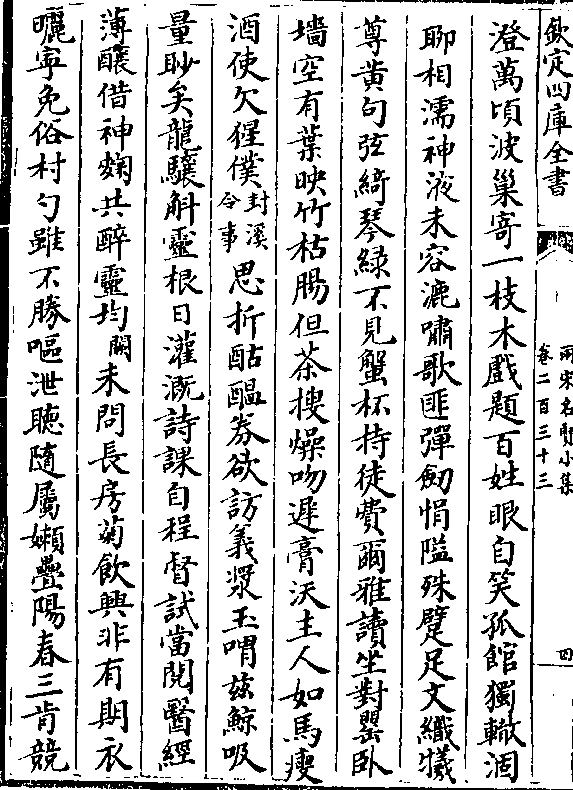 欽定四庫全書
兩宋名賢小集
卷二百三十三
四
澄萬頃波巢寄一枝木戲題百姓眼自笑孤館獨轍涸
聊相濡神液未容漉嘯歌匪彈劒悁隘殊躄足文纖犧
尊黄句弦綺琴緑不見蟹杯持徒費爾雅讀坐對罍臥
墻空有葉映竹枯腸但茶搜燥吻遲膏沃主人如馬瘦
酒使欠猩僕封溪令事思折酤醖券欲訪義漿玉喟兹鯨吸
量眇矣龍驤斛靈根日灌溉詩課自程督試當閱醫經
薄釀借神麴共醉靈均闕未問長房菊飲興非有期衣
曬寧免俗村勺雖不勝嘔泄聽隨屬嬾疊陽春三肯競